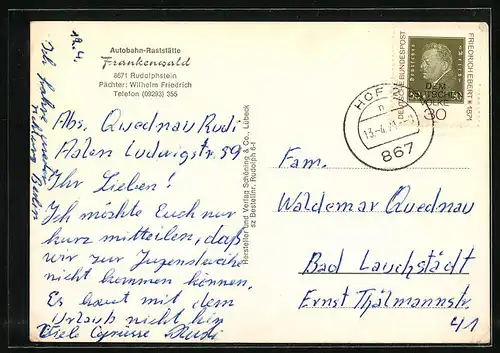 12.4.
Autobahn-Raststätte
Frankenwald
8671 Rudolphstein
Pächter: Wilhelm Friedrich
Telefon (09293) 355
Abs. Quednau Rudi
Aalen Ludwigstr. 59
Ihr Lieben!
Ich möchte Euch nur
kurz mitteilen, daß
wir zur Jugendweihe
nicht kommen können.
Es haut mit dem
Urlaub nicht hin
Viele Grüsse Rudi
Ich fahre
Richtung Berlin
Hersteller und Verlag Schöning & Co., Lübeck
sz Bestellnr. Rudolph 6-f
DEUTSCHE BUNDESPOST
FRIEDRICH EBERT * 1871
DEM
DEUTSCHEN
VOLKE
30
HOF
13.-4.71
867
Fam.
Waldemar Quednau
Bad Lauchstädt
Ernst Thälmannstr.
41